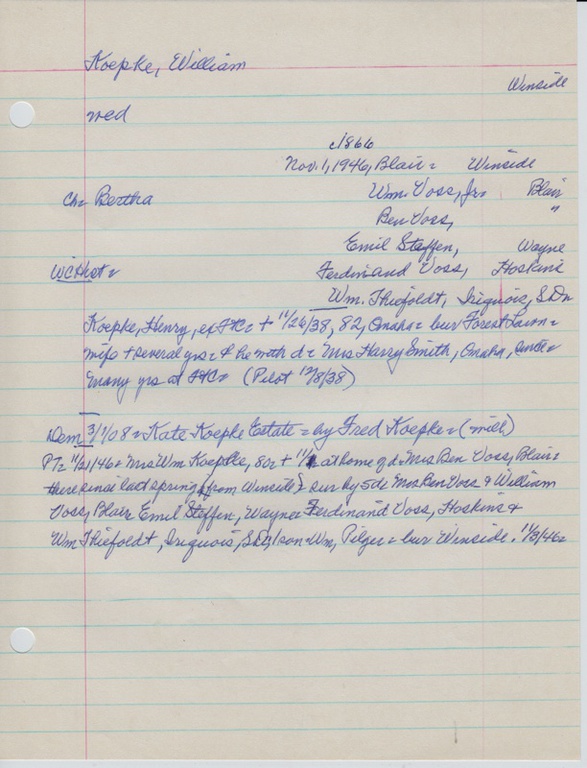 Koepke, William
Winside
med
c1866
Nov. 1, 1946, Blair = Winside
Ch = Bertha Wm. Voss, Jr. Blair
Ben Voss, "
Emil Steffen, Wayne
WCHist = Ferdinand Voss, Hoskins
Wm. Thiefoldt, Iriquois, S.D.
Koepke, Henry, ex + 11/26/38, 82, Omaha = bur Forest Lawn =
wife + several yrs = & he with d = Mrs Harry Smith, Omaha,
many yrs at (Pilot 12/8/38)
Dem 3/1/08 = Kate Koepke Estate = by Fred Koepke = (will)
PT = 11/21/46 = Mrs Wm Koepke, 80 = + 11/1 at home of d Mrs Ben Voss, Blair =
there since last spring (from Winside) sur by 5 d = Mrs Ben Voss & William
Voss, Blair Emil Steffen, Wayne = Ferdinand Voss, Hoskins &
Wm Thiefoldt, Iriquois, S.D. / son = Wm, Pilger = bur Winside. 11/3/46 =